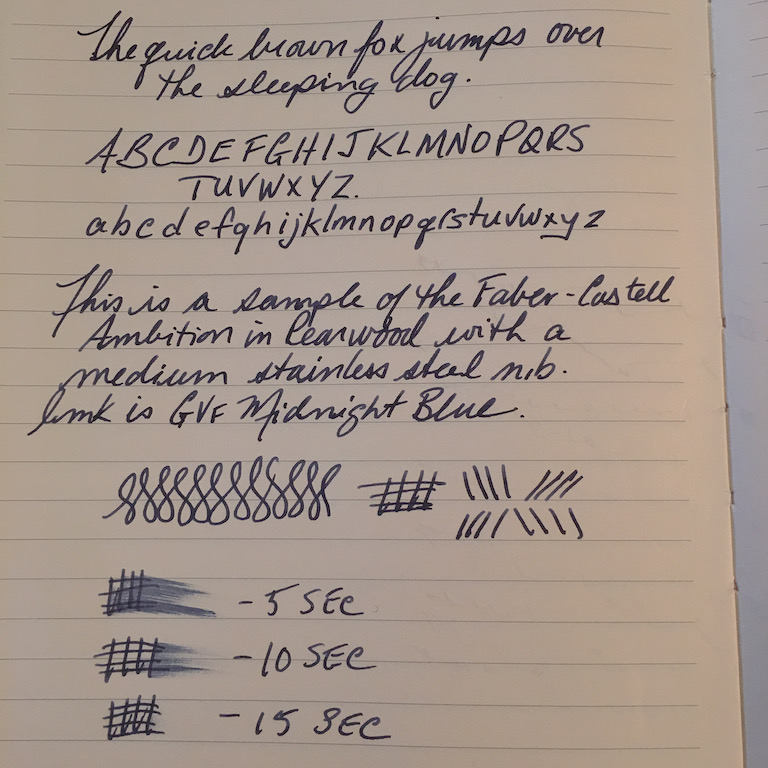 The quick brown fox jumps over
the sleeping dog.
ABCDEFGHIJKLMNOPQRS
TUVWXYZ.
abcdefghijklmnopqrstuvwxyz
This is a sample of the Faber-Castell
Ambition in Pearwood with a
medium stainless steel nib.
Ink is GVF Midnight Blue.
- 5 SEC
- 10 SEC
- 15 SEC